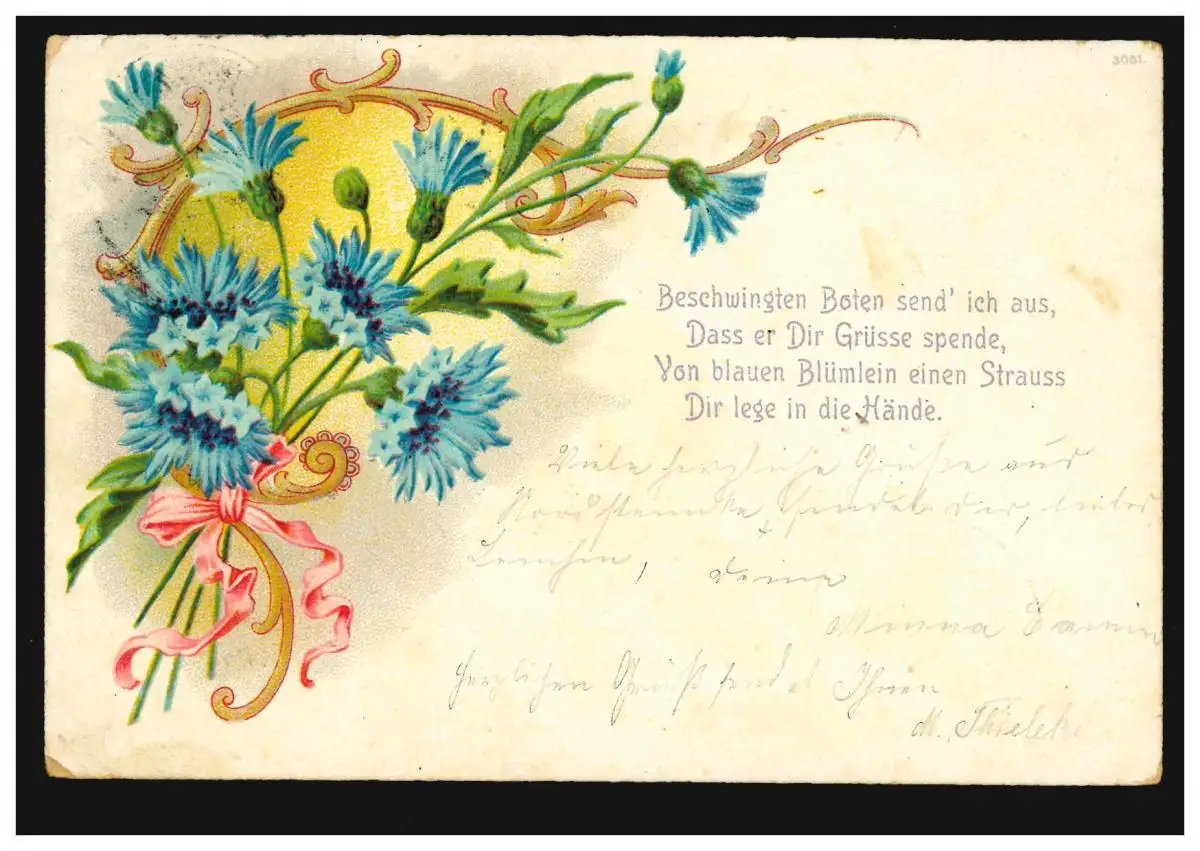 3081.
Beschwingten Boten send' ich aus,
Dass er Dir Grüsse spende,
Von blauen Blümlein einen Strauss
Dir lege in die Hände.
Viele herzliche Grüße aus
sendet dir, liebes
, Deine
Minna
Herzlichen Gruß sendet Ihnen
M. Thielek